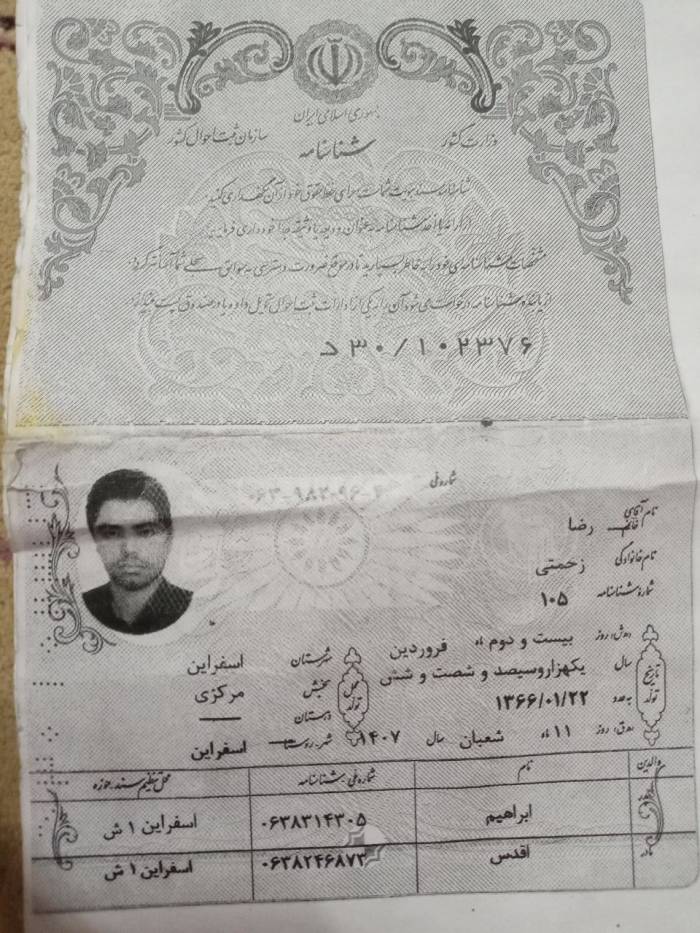 جمهوری اسلامی ایران
وزارت کشور
سازمان ثبت احوال کشور
شناسنامه
شناسنامه سند هویت شماست برای حفظ حقوق خود از آن نگهداری کنید.
از ارائه یا اخذ شناسنامه به عنوان ودیعه یا وثیقه جداً خودداری فرمایید.
مشخصات شناسنامه‌ای خود را به خاطر بسپارید تا در موقع ضرورت، دسترسی به سوابق سجلی شما آسانتر گردد.
از یابنده شناسنامه درخواست می‌شود آن را به یکی از ادارات ثبت احوال تحویل داده یا در صندوق پست بیندازد.
۳۰/۱۰۲۳۷۶ د
شماره ملی
نام آقای خانم رضا
نام خانوادگی زحمتی
شماره شناسنامه ۱۰۵
تاریخ تولد
(ه‍.ش) روز بیست و دوم ماه فروردین
سال یکهزاروسیصد و شصت و شش
به عدد ۱۳۶۶/۰۱/۲۲
(ه‍.ق) روز ۱۱ ماه شعبان سال ۱۴۰۷
محل تولد
شهرستان اسفراین
بخش مرکزی
دهستان —
شهر-روستا اسفراین
والدین نام شماره ملی/شناسنامه محل تنظیم سند/حوزه
پدر ابراهیم ۰۶۳۸۳۱۴۳۰۵ اسفراین ۱ ش
مادر اقدس ۰۶۳۸۲۴۶۸۷۳ اسفراین ۱ ش